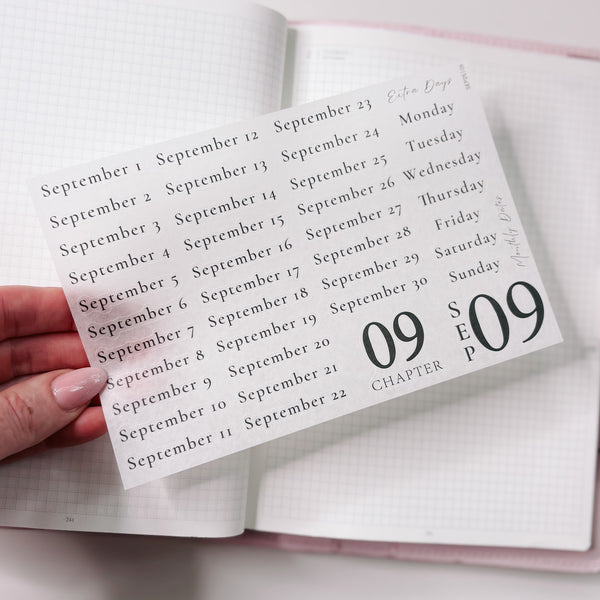 September 1
September 2
September 3
September 4
September 5
September 6
September 7
September 8
September 9
September 10
September 11
September 12
September 13
September 14
September 15
September 16
September 17
September 18
September 19
September 20
September 21
September 22
September 23
September 24
September 25
September 26
September 27
September 28
September 29
September 30
Extra Days
Monday
Tuesday
Wednesday
Thursday
Friday
Saturday
Sunday
Monthly Dates
09
CHAPTER
SEP
09